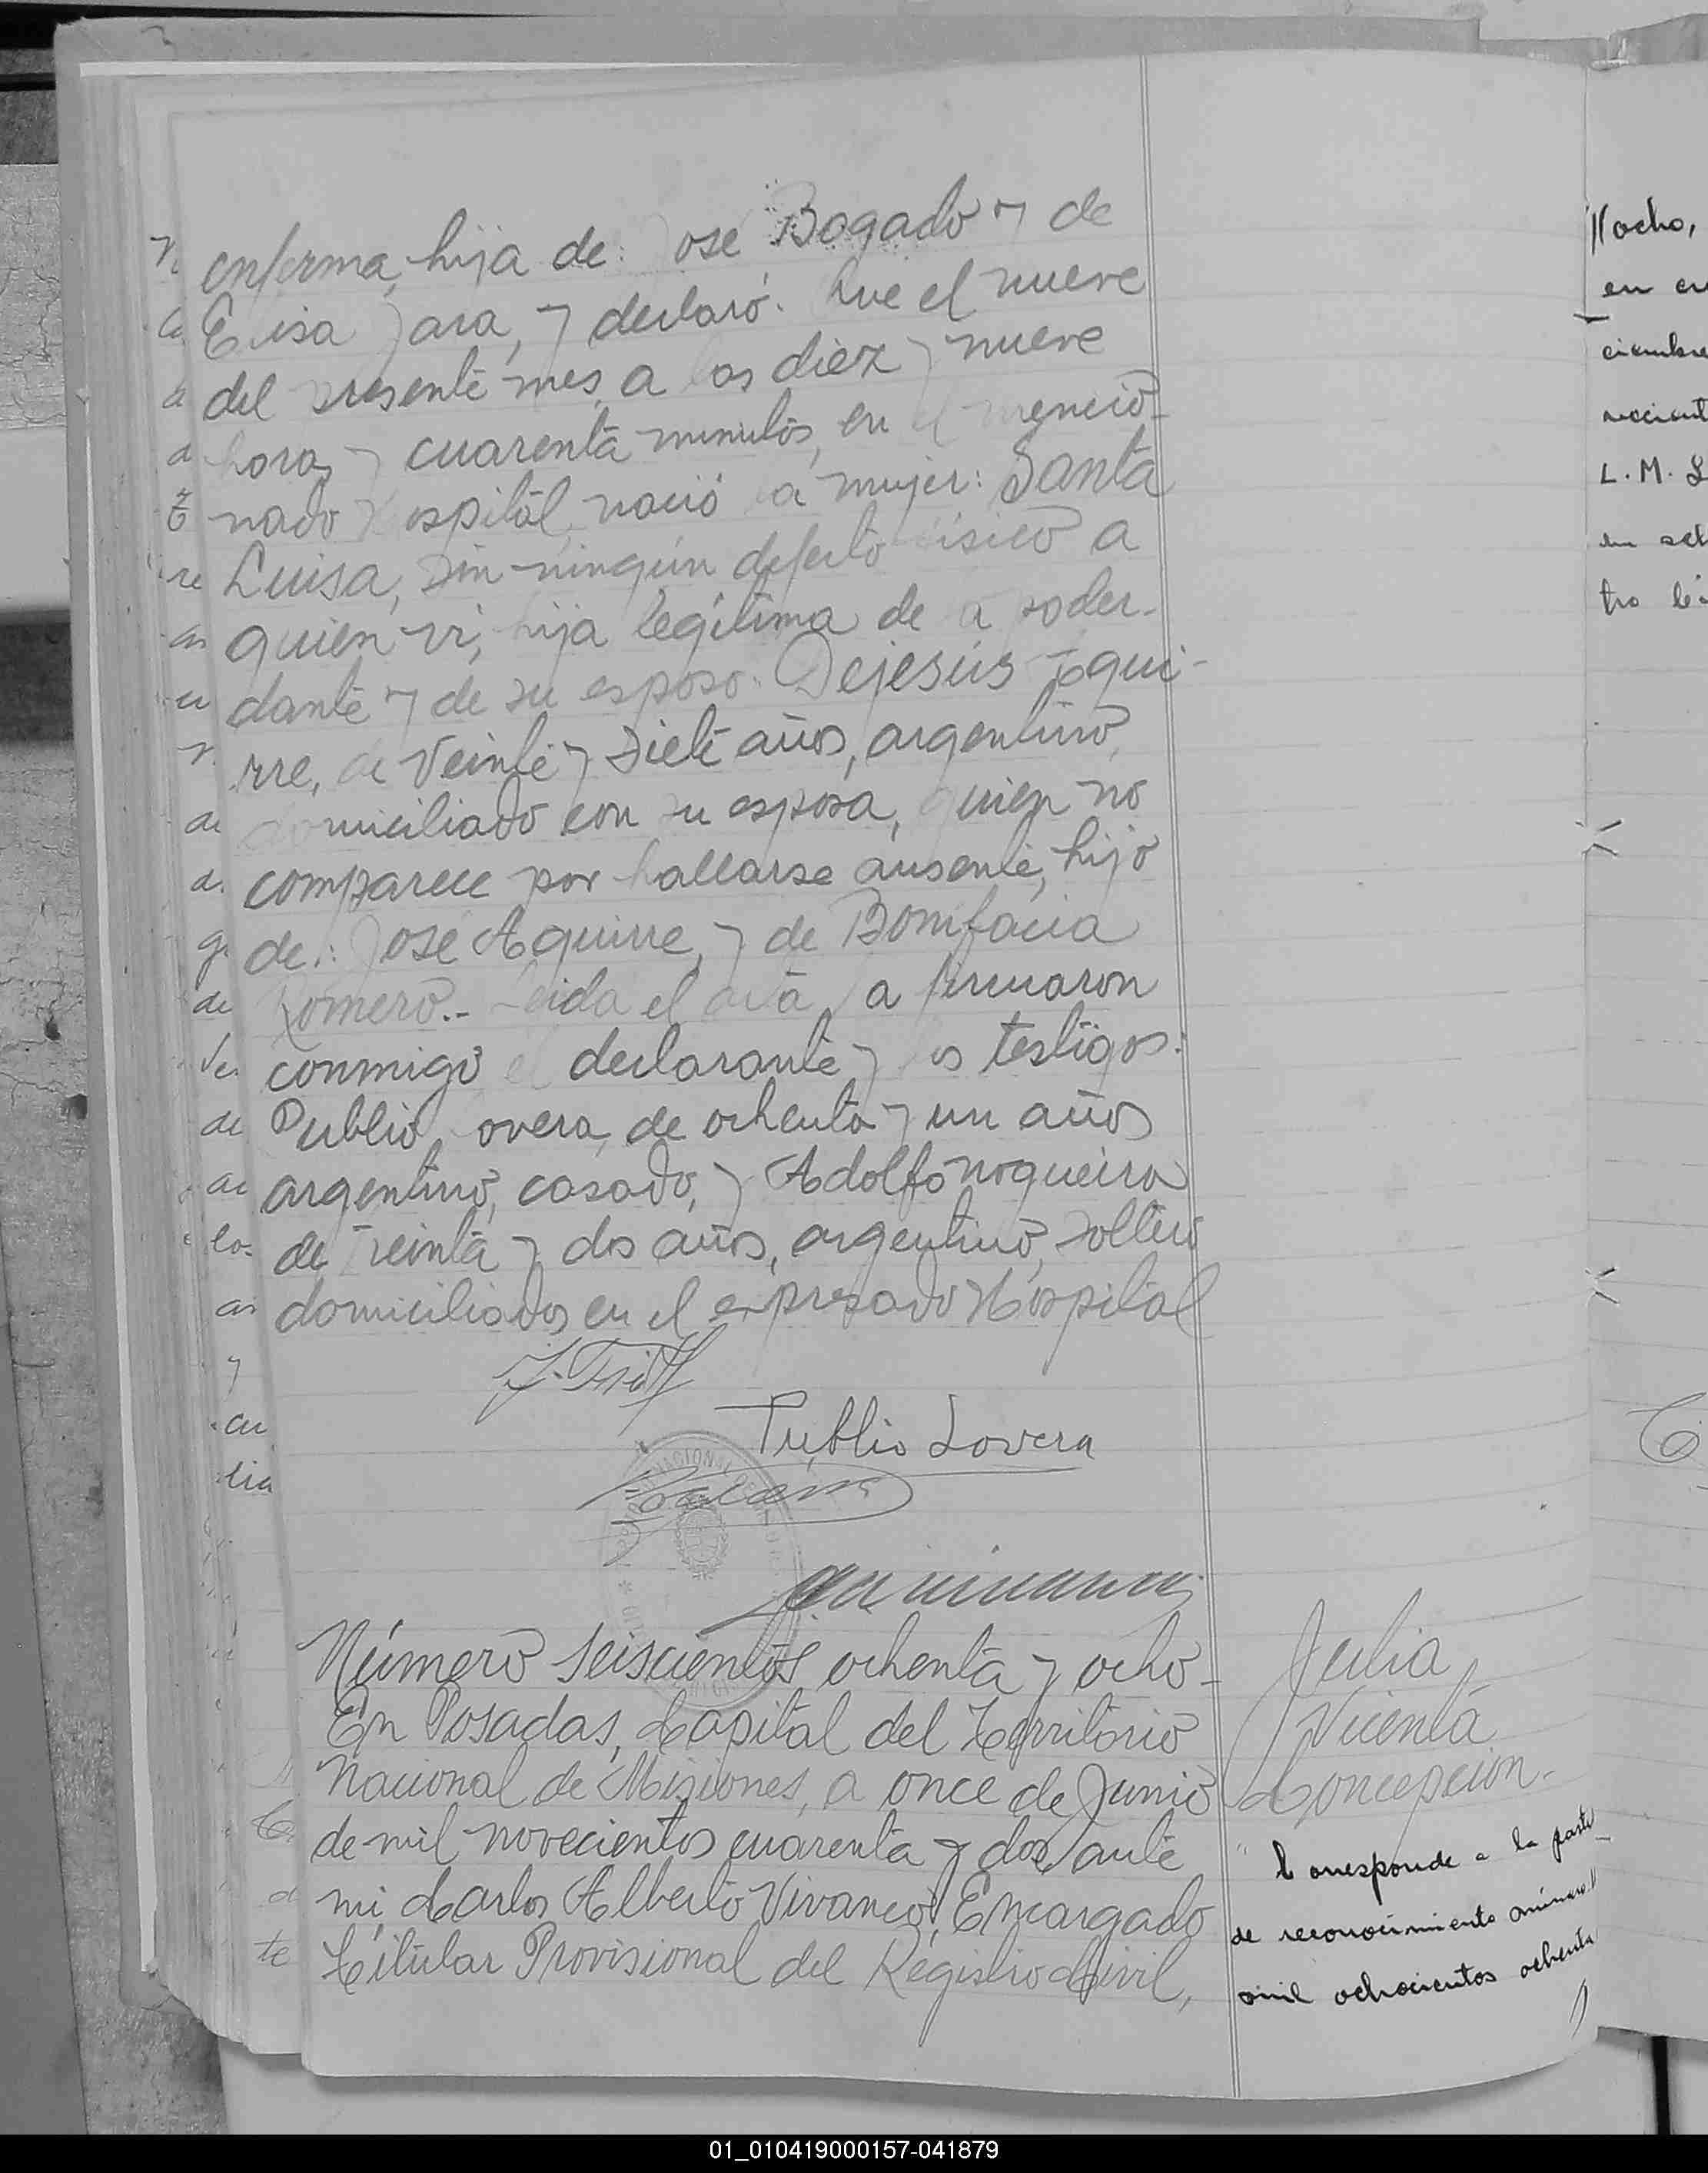 enferma, hija de: Jose Bogado y de
Elisa Jara, y declaró: Que el nueve
del presente mes, a las diez y nueve
horas y cuarenta minutos, en el mencio-
nado Hospital, nació la mujer: Santa
Luisa, sin ningún defecto físico a
quien vi, hija legítima de la poder-
dante y de su esposo: Dejesús Agui-
rre, de veinte y siete años, argentino,
domiciliado con su esposa, quien no
comparece por hallarse ausente, hijo
de: José Aguirre, y de Bonifacia
Romero.- Leida el acta, la firmaron
conmigo el declarante y los testigos:
Publio Lovera, de ochenta y un años
argentino, casado, y Adolfo Nogueira
de treinta y dos años, argentino, soltero
domiciliados en el expresado Hospital
Publio Lovera
Número seiscientos ochenta y ocho-
En Posadas, Capital del Territorio
Nacional de Misiones, a once de Junio
de mil novecientos cuarenta y dos, ante
mi, Carlos Alberto Vivanco, Encargado
Titular Provisional del Registro Civil,
Julia
Vicenta
Concepcion.
Corresponde a la parti-
de reconocimiento número
mil ochocientos ochenta
//
//ocho,
L. M.
01_010419000157-041879